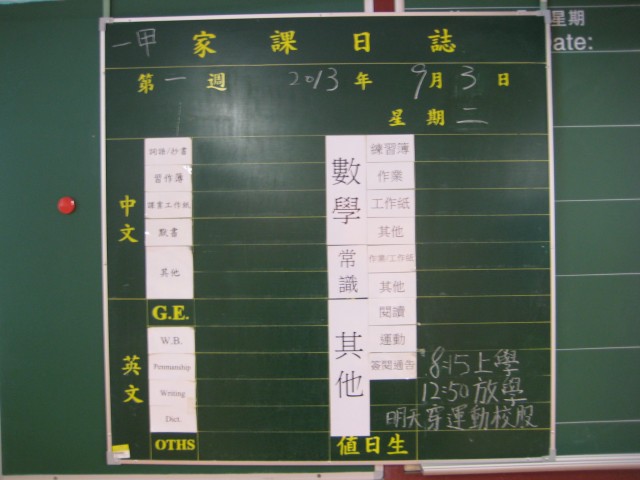 一甲 家課日誌
第一週 2013年 9月3日
星期二
中文
詞語/抄書
習作簿
課業工作紙
默書
其他
英文
G.E.
W.B.
Penmanship
Writing
Dict.
OTHS
數學
練習簿
作業
工作紙
其他
常識
作業/工作紙
其他
其他
閱讀
運動
簽閱通告
8:15上學
12:50放學
明天穿運動校服
值日生
星期
ate: